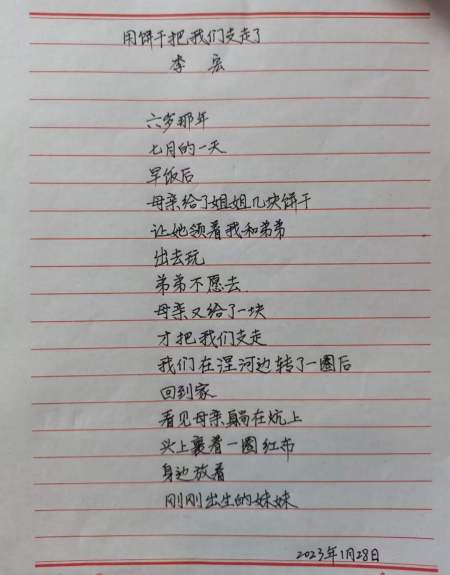 用饼干把我们支走了
李岩
六岁那年
七月的一天
早饭后
母亲给了姐姐几块饼干
让她领着我和弟弟
出去玩
弟弟不愿去
母亲又给了一块
才把我们支走
我们在涅河边转了一圈后
回到家
看见母亲躺在炕上
头上裹着一圈红布
身边放着
刚刚出生的妹妹
2023年1月28日